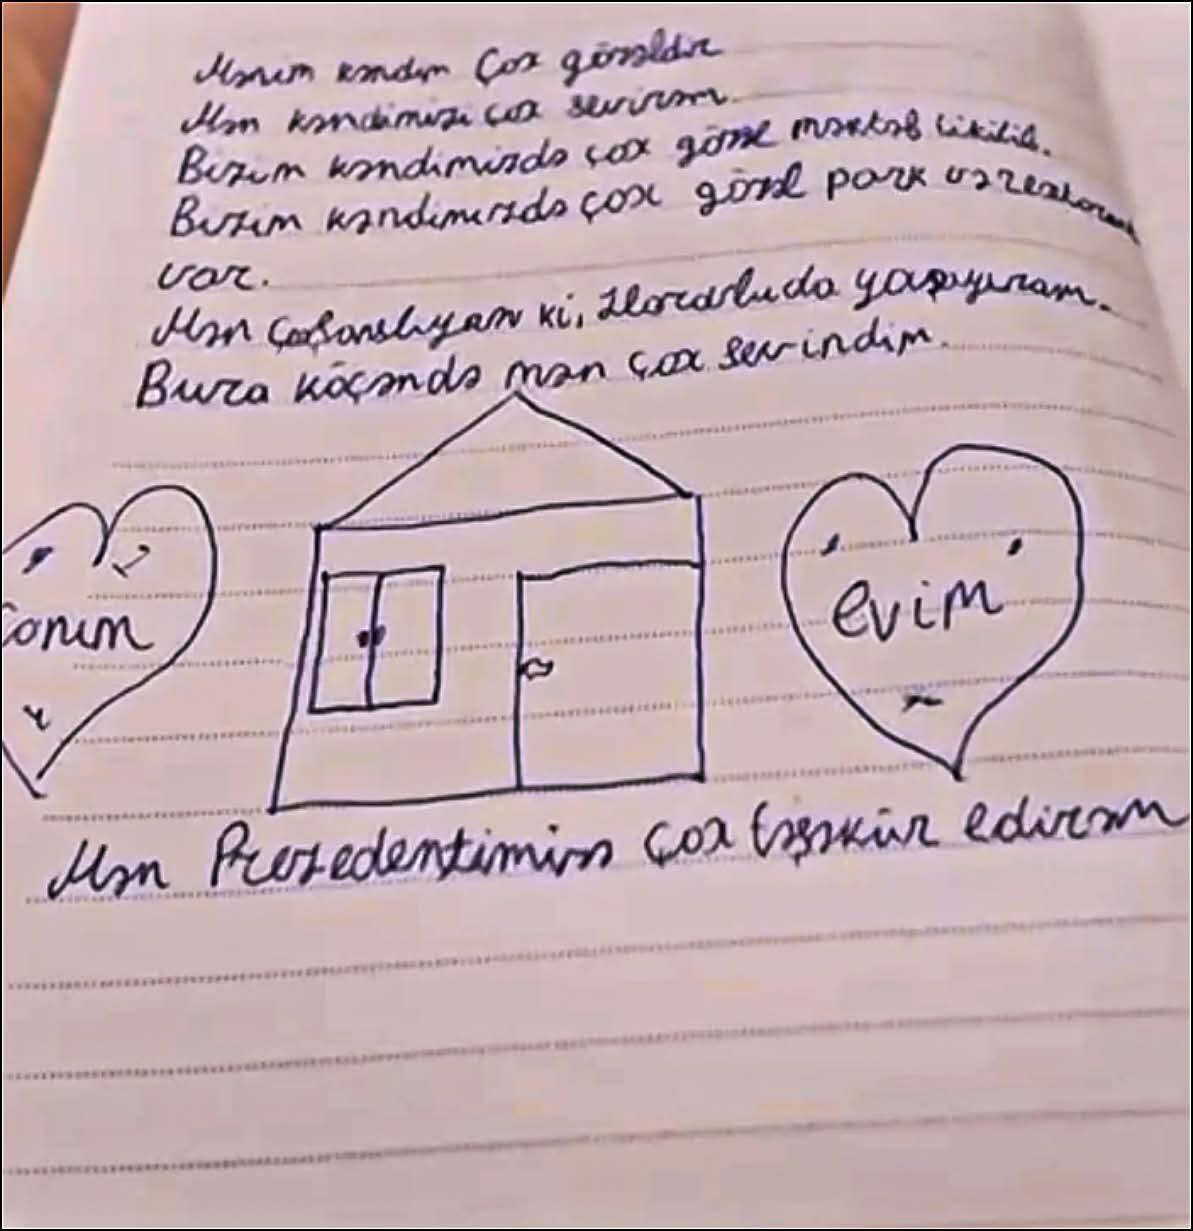 Mənim kəndim Çox gözəldir
Mən kəndimizi çox sevirəm.
Bizim kəndimizdə çox gözəl məktəb tikilib.
Bizim kəndimizdə çox gözəl park və restoran
var.
Mən çoxşanslıyam ki, Horadizdə yaşayıram.
Bura köçəndə mən çox sevindim.
Canım
evim
Mən Prezedentimizə çox təşəkür edirəm